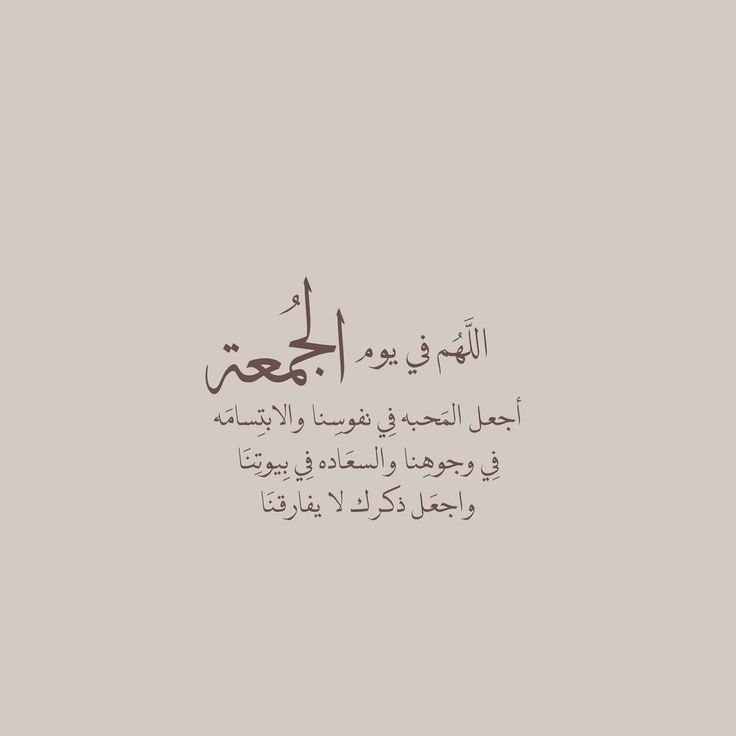 اللَّهُم في يوم الجُمعة
أجعل المَحبه فِي نفوسِنا والابتِسامَه
فِي وجوهِنا والسعَاده فِي بِيوتِنَا
واجعَل ذكرك لا يفارقنَا